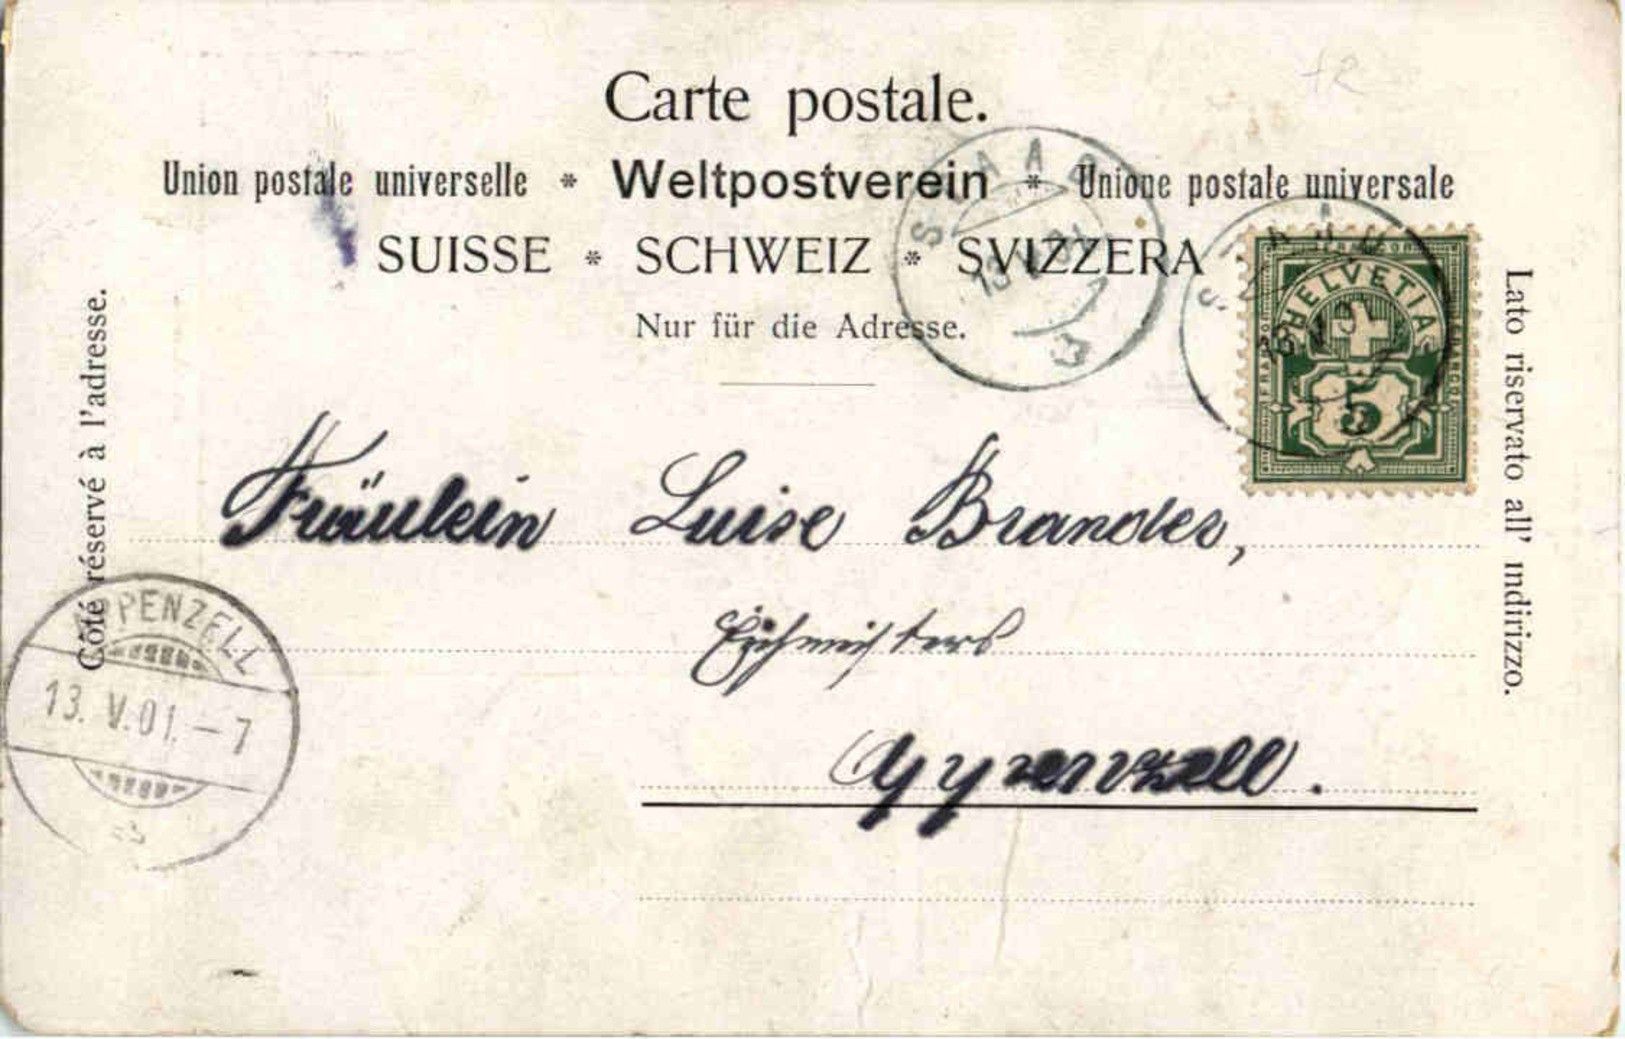 Carte postale.
Union postale universelle * Weltpostverein * Unione postale universale
SUISSE * SCHWEIZ * SVIZZERA
Nur für die Adresse.
Côté réservé à l'adresse.
Lato riservato all' indirizzo.
HELVETIA
FRANCO
5
Fräulein Luise Brandes,
Appenzell.
APPENZELL
13. V. 01. – 7